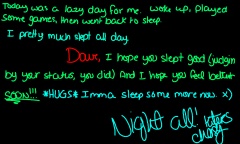 Today was a lazy day for me. woke up, played
some games, then went back to sleep
I pretty much slept all day.
Dave, I hope you slept good (judgin
by your status, you did) And I hope you feel better
SOON!!! *HUGS* Imma sleep some more now. x)
Night all!